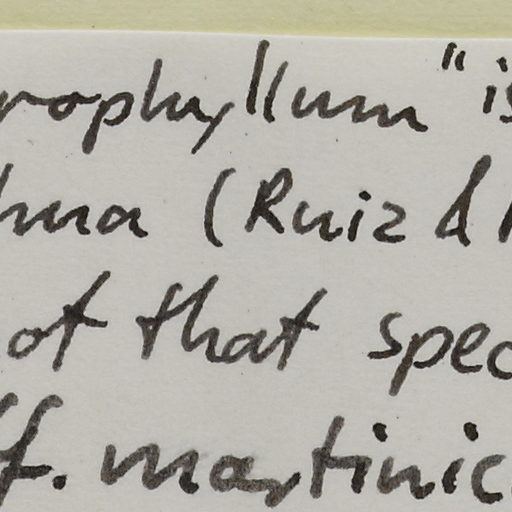 rophyllum" is
(Ruiz &
of that spec
ff. martinic